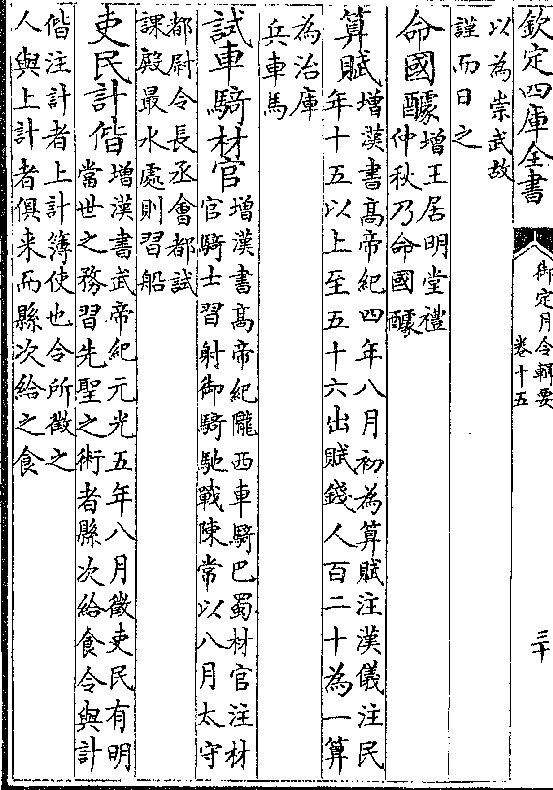 欽定四庫全書
御定月令輯要
卷十五
三十
以為崇武故
謹而日之
命國醵增王居明堂禮
仲秋乃命國醵
算賦增漢書髙帝紀四年八月初為算賦注漢儀注民
年十五以上至五十六出賦錢人百二十為一算
為治庫
兵車馬
試車騎材官增漢書髙帝紀隴西車騎巴蜀材官注材
官騎士習射御騎馳戰陳常以八月太守
都尉令長丞會都試
課殿最水處則習船
吏民計偕增漢書武帝紀元光五年八月徵吏民有明
當世之務習先聖之術者縣次給食令與計
偕注計者上計簿使也令所徵之
人與上計者俱来而縣次給之食